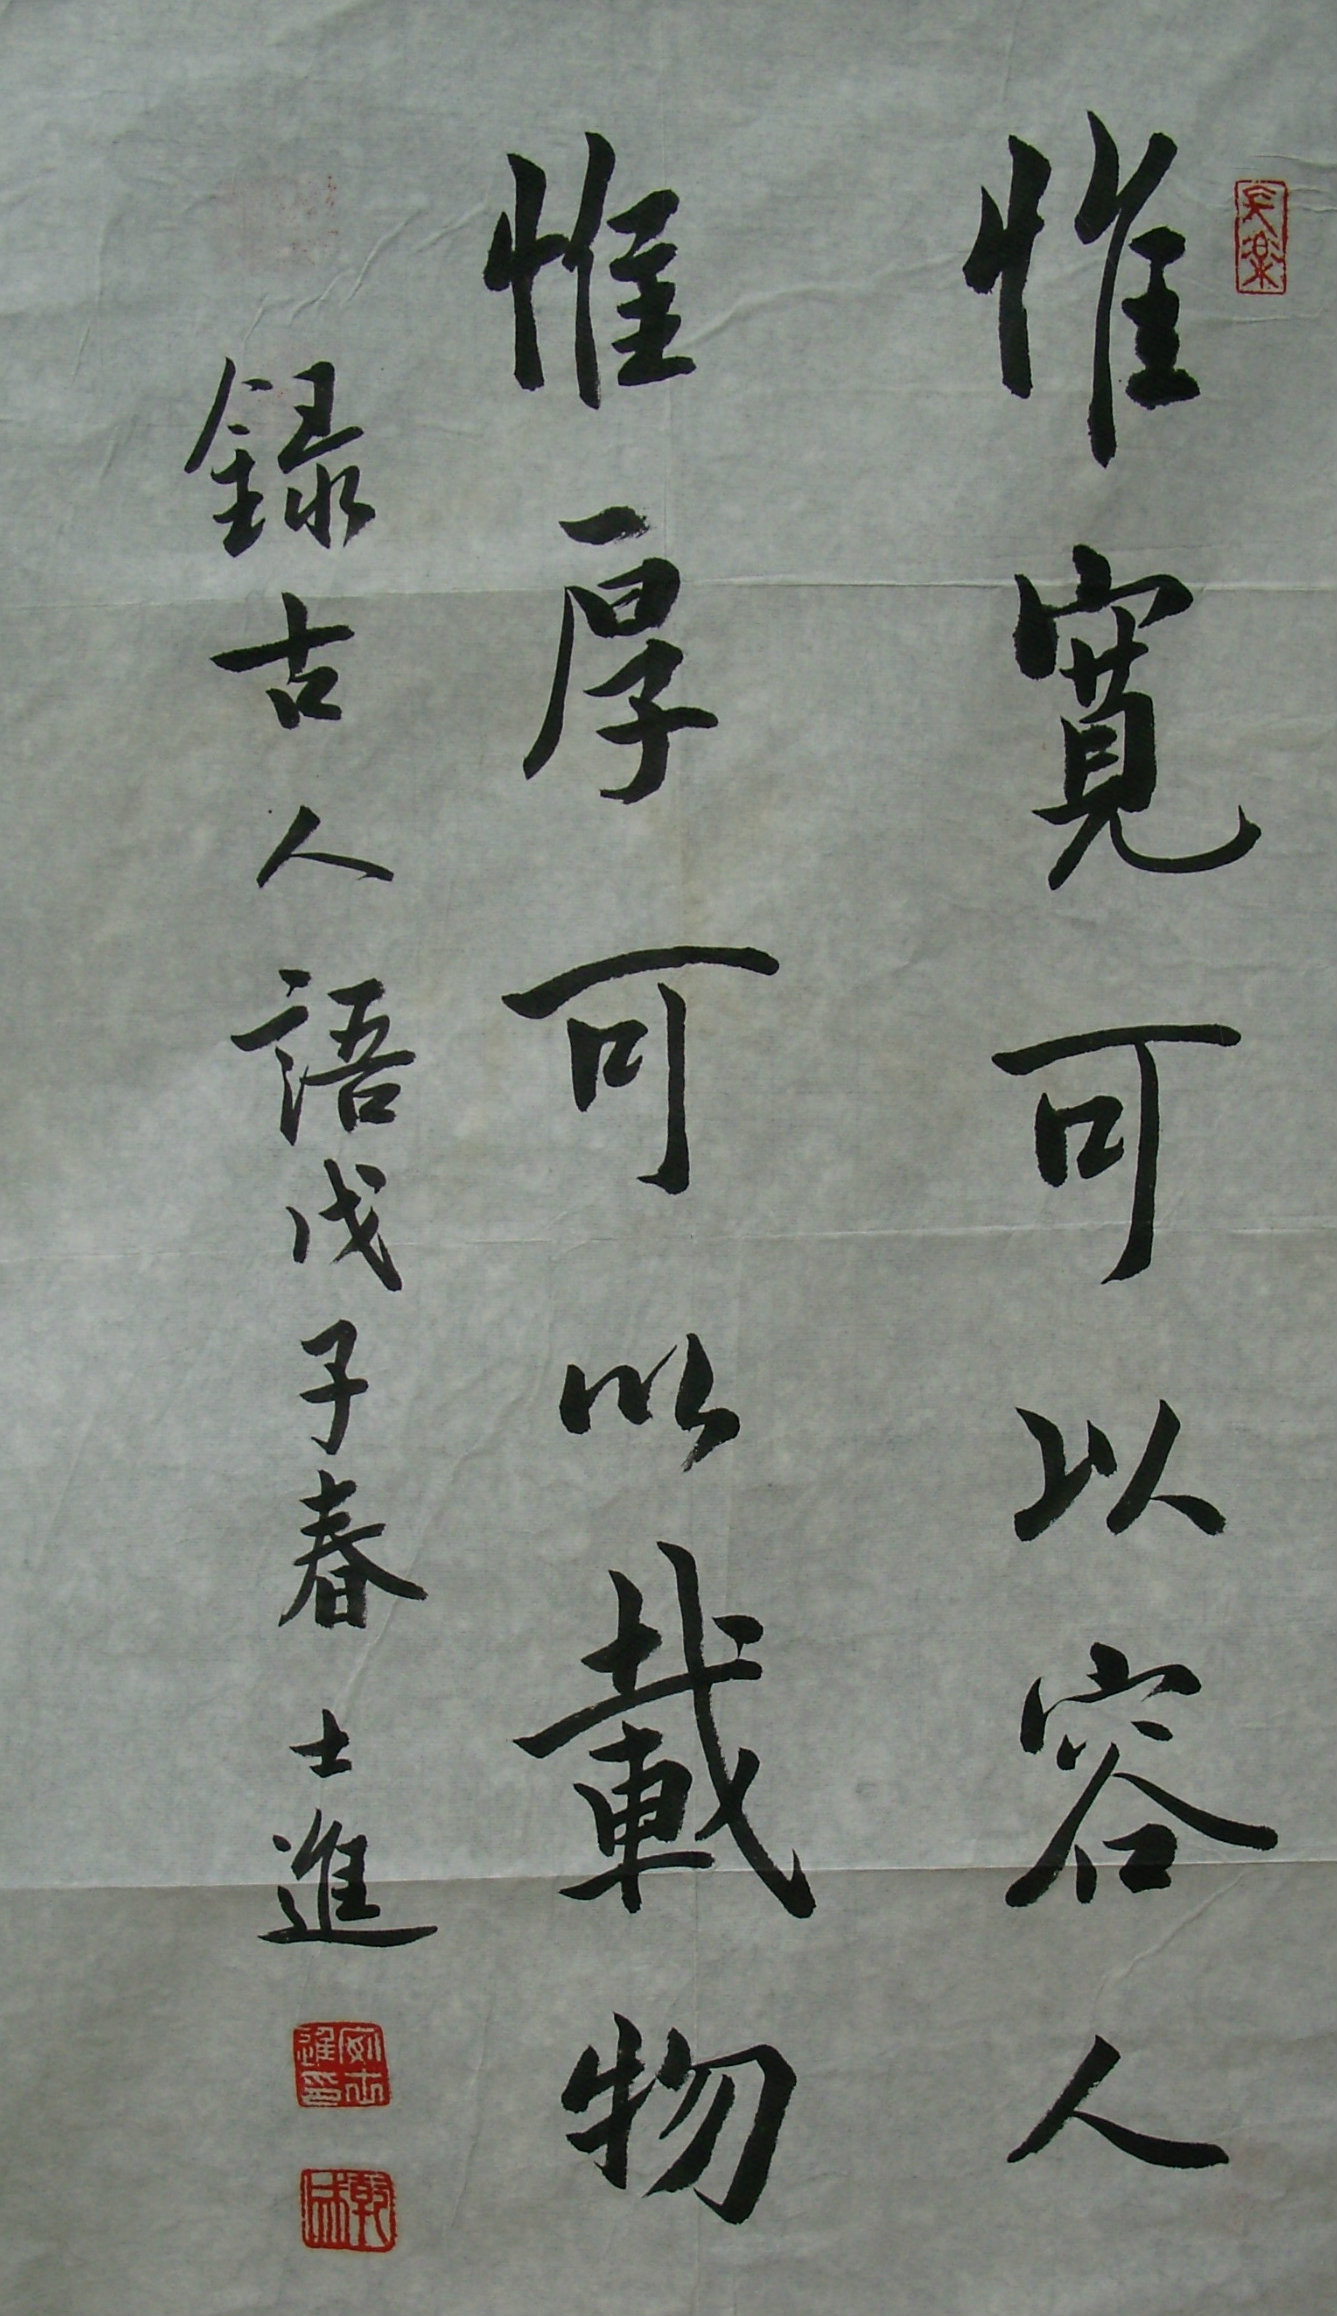 惟寬可以容人
惟厚可以載物
録古人語戊子春 士進
長樂